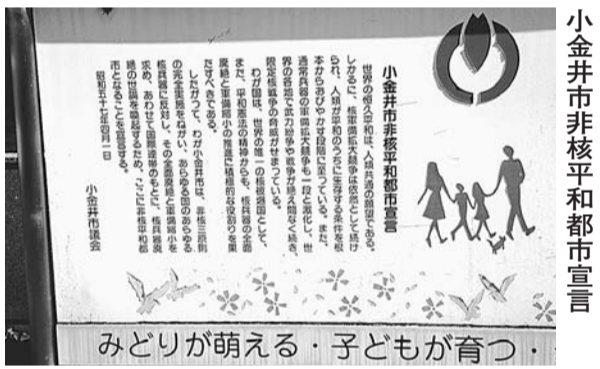 小金井市非核平和都市宣言
小金井市非核平和都市宣言
世界の恒久平和は、人類共通の願望である。
しかるに、核軍備拡大競争は依然として続け
られ、人類が平和のうちに生存する条件を根
本からおびやかす段階に至っている。また、
通常兵器の軍備拡大競争も一段と激化し、世
界の各地で武力紛争や戦争が絶え間なく続き、
限定核戦争の脅威がせまっている。
わが国は、世界の唯一の核被爆国として、
また、平和憲法の精神からも、核兵器の全面
廃絶と軍備縮小の推進に積極的な役割りを果
たすべきである。
したがって、わが小金井市は、非核三原則
の完全実施をねがい、あらゆる国のあらゆる
核兵器に反対し、その全面廃絶と軍備縮小を
求め、あわせて国際連帯のもとに、核兵器廃
絶の世論を喚起するため、ここに非核平和都
市となることを宣言する。
昭和五十七年四月一日
小金井市議会
みどりが萌える・子どもが育つ・